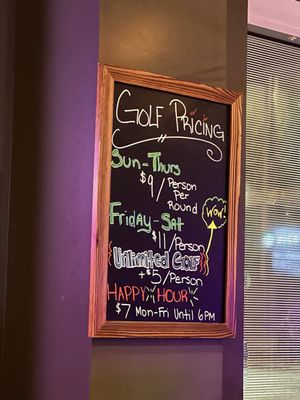 Golf Pricing
Sun-Thurs
$9/Person
Per
Round
Friday-Sat
WOW!
$11/Person
Unlimited Golf
+$5/Person
Happy Hour
$7 Mon-Fri Until 6PM